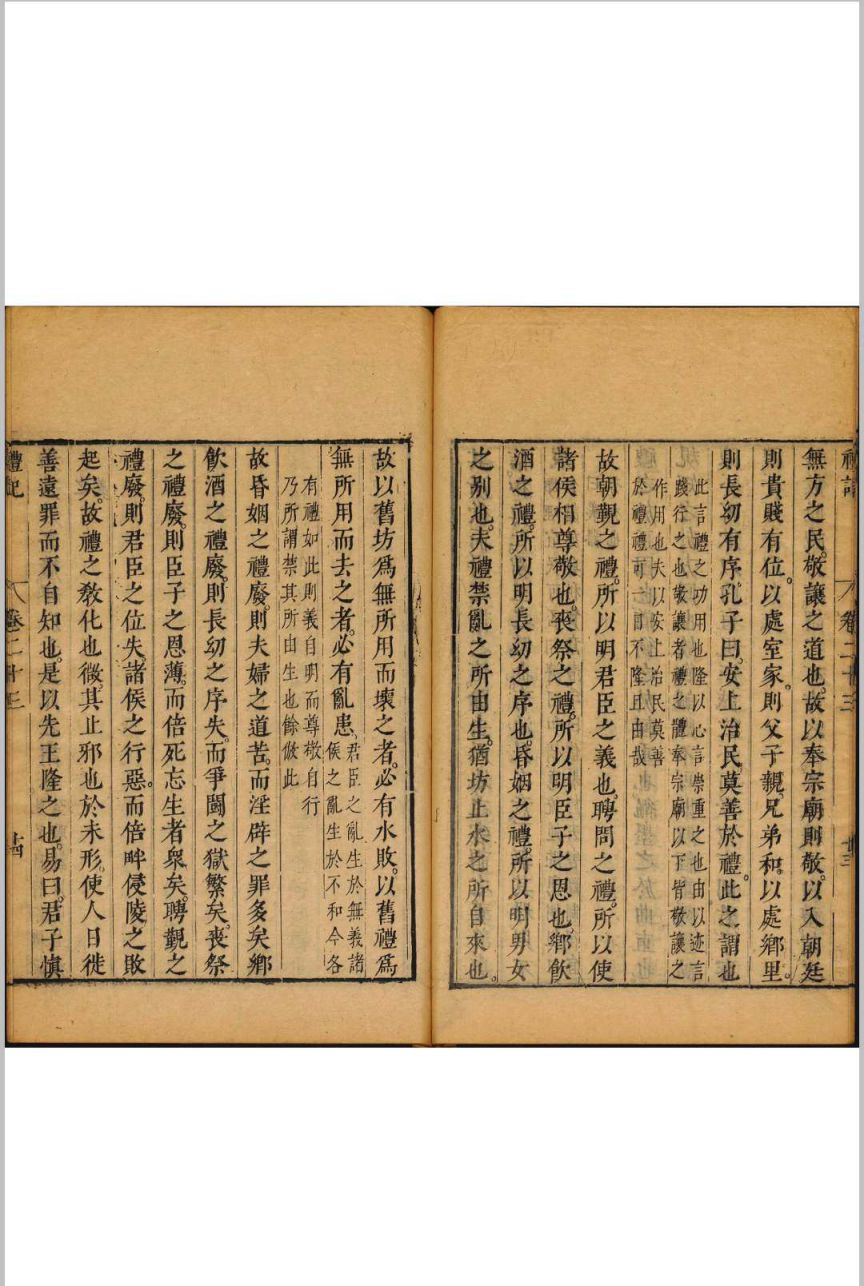 禮記
卷二十三
無方之民。敬讓之道也。故以奉宗廟則敬。以入朝廷
則貴賤有位。以處室家。則父子親。兄弟和。以處鄉里。
則長幼有序。孔子曰。安上治民。莫善於禮。此之謂也
此言禮之功用也隆以心言崇重之也由以迹言
踐行之也敬讓者禮之體奉宗廟以下皆敬讓之
作用也夫以安上治民莫善
於禮禮可一日不隆且由哉
故朝覲之禮。所以明君臣之義也。聘問之禮。所以使
諸侯相尊敬也。喪祭之禮。所以明臣子之恩也。鄉飲
酒之禮。所以明長幼之序也。昏姻之禮。所以明男女
之別也。夫禮禁亂之所由生。猶坊止水之所自來也。
故以舊坊爲無所用而壞之者。必有水敗。以舊禮爲
無所用而去之者。必有亂患。
君臣之亂生於無義諸
侯之亂生於不和今各
有禮如此則義自明而尊敬自行
乃所謂禁其所由生也餘倣此
故昏姻之禮廢。則夫婦之道苦。而淫辟之罪多矣鄉
飲酒之禮廢。則長幼之序失。而爭鬭之獄繁矣。喪祭
之禮廢。則臣子之恩薄。而倍死忘生者衆矣。聘覲之
禮廢。則君臣之位失。諸侯之行惡。而倍畔侵陵之敗
起矣。故禮之敎化也微。其止邪也於未形。使人日徙
善遠罪而不自知也。是以先王隆之也。易曰。君子愼
禮記
卷二十三
十四